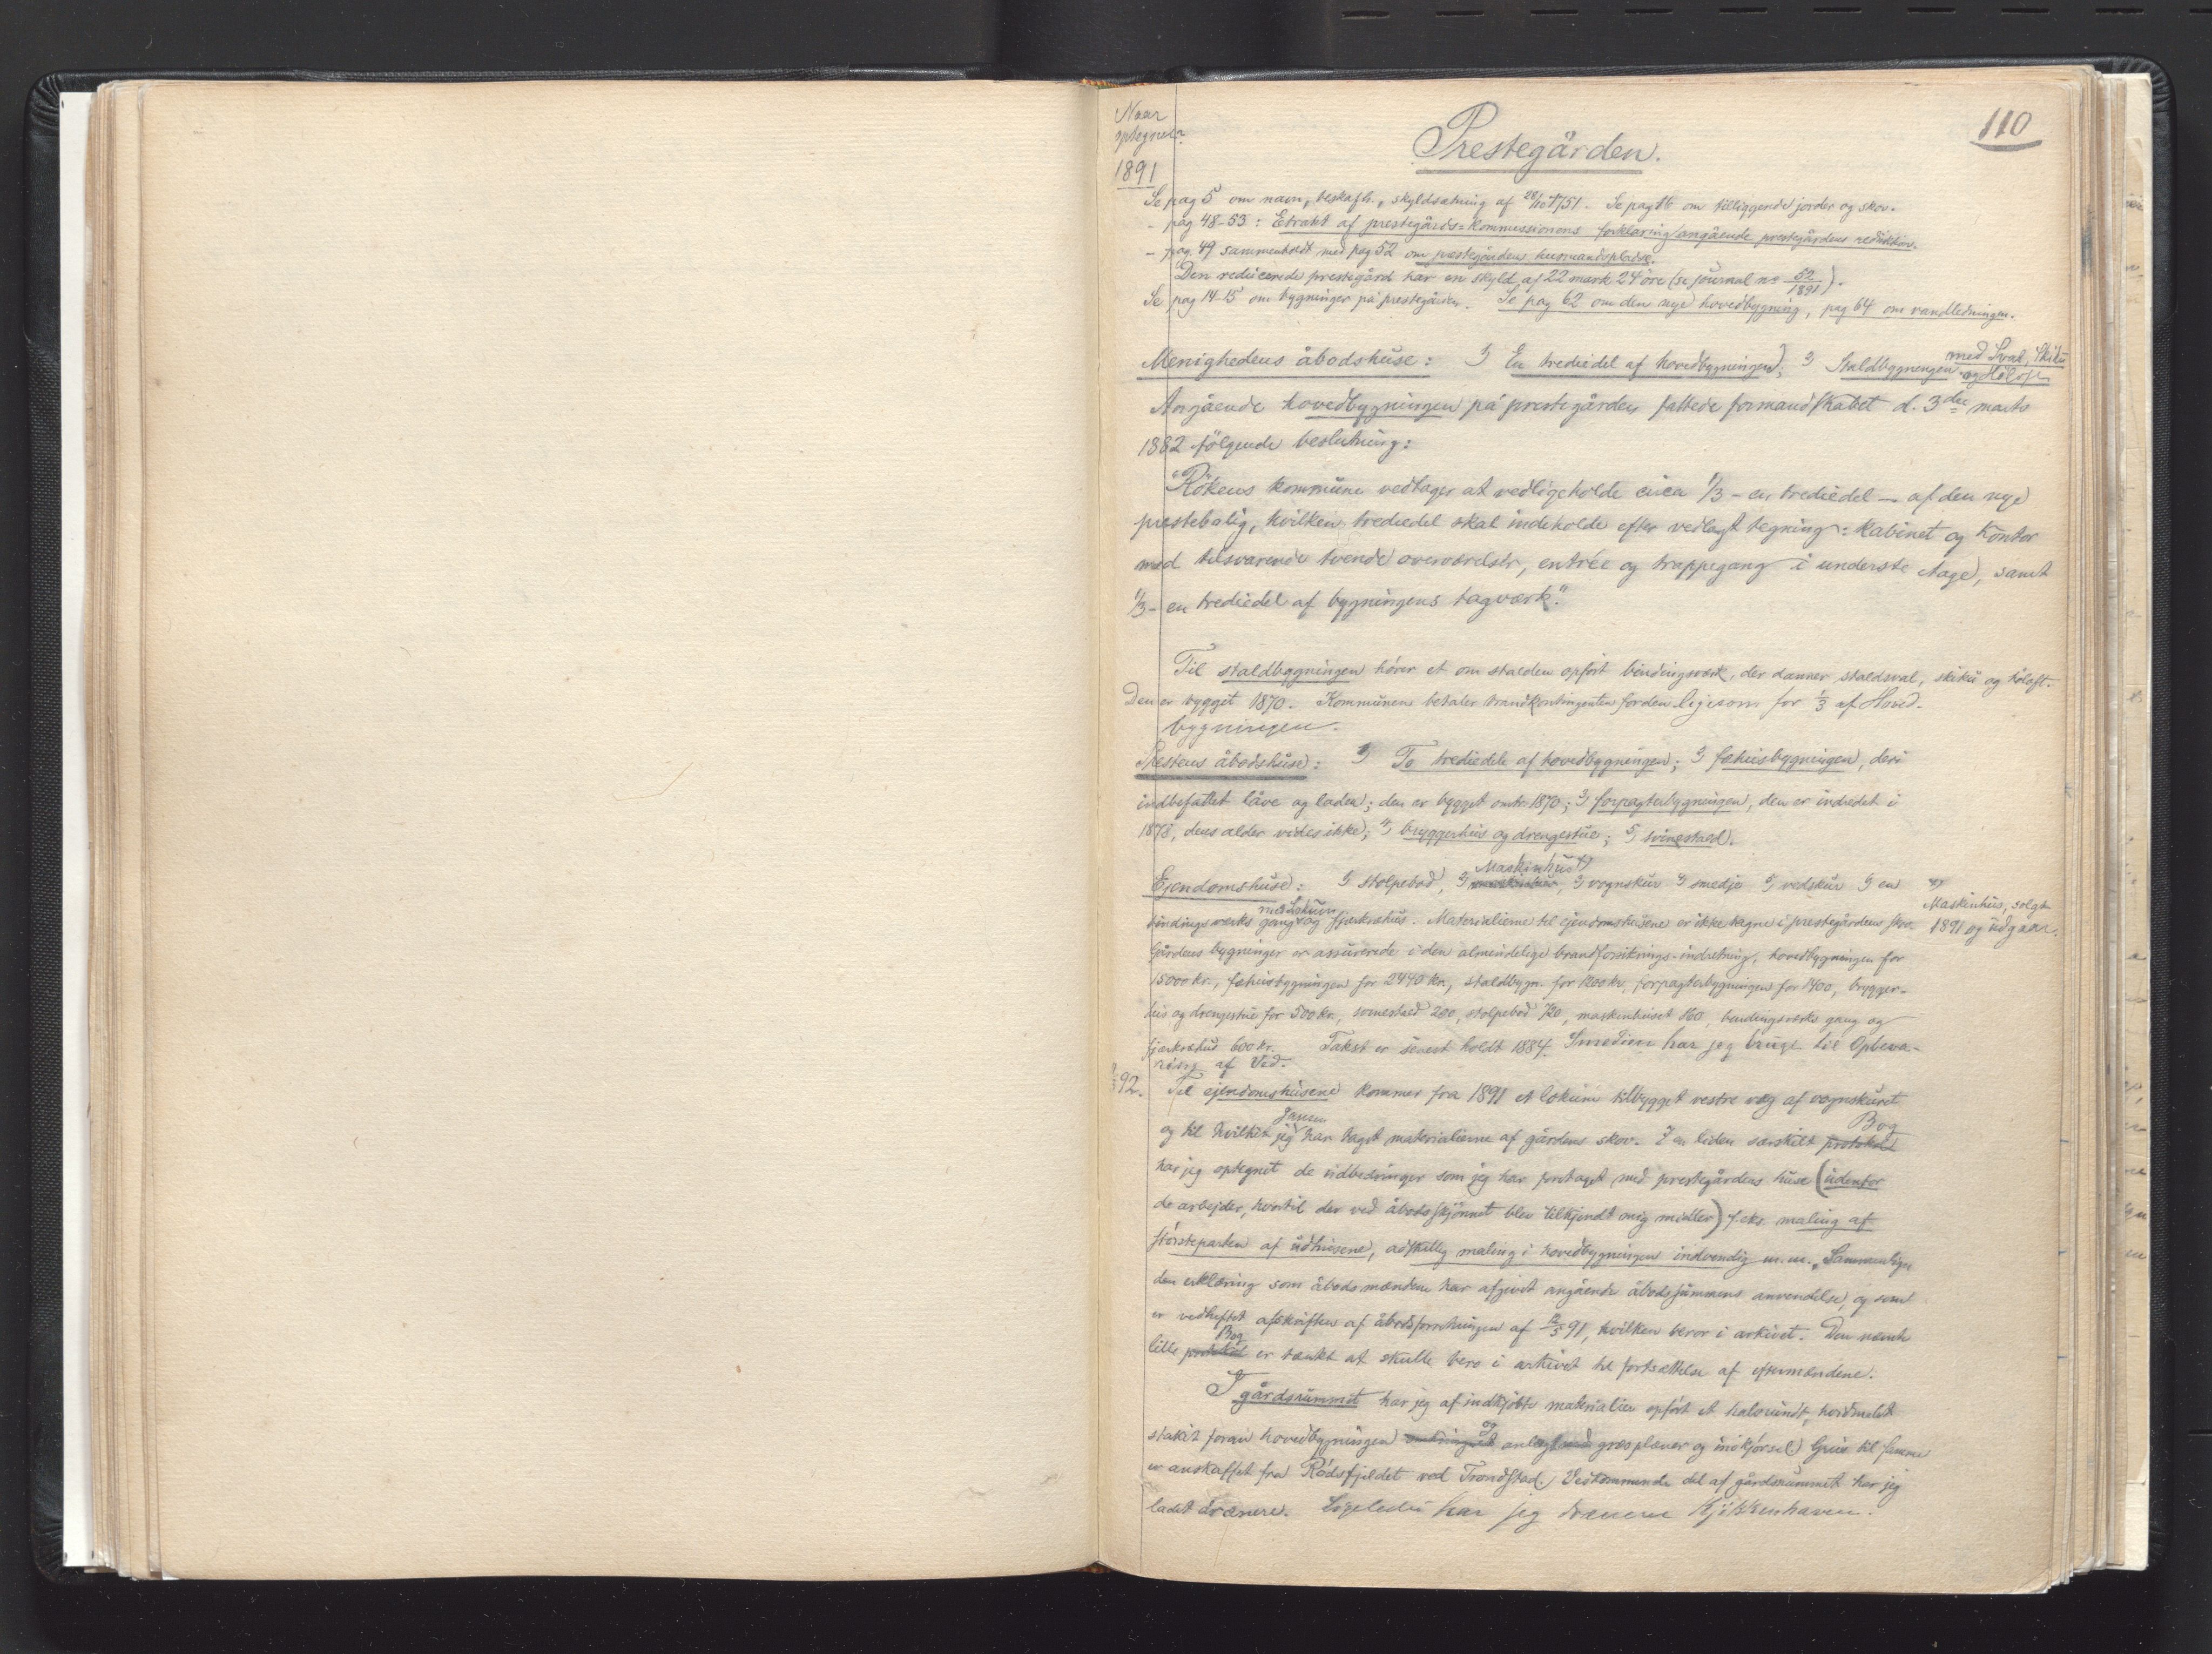 110
Naar
optegnet?
1891
Prestegården.
Se pag 5 om navn, beskaffh., skyldsætning af Se pag 16 om tilliggende jorder og skov.
- pag 48-53: Extrakt af prestegårds-kommissionens forklaring angående prestegårdens reduktion.
- pag. 49 sammenholdt med pag 52 om prestegårdens husmandspladse.
Den reducerede prestegård har en skyld af 22 mark 24 öre (se journal no 52/1891).
Se pag 14-15 om bygninger på prestegården. Se pag 62 om den nye hovedbygning, pag 64 om vandledningen.
Menighedens åbodshuse: 1) En trediedel af hovedbygningen; 2) Staldbygningen med Sval, Skikü og Höloft
Angående hovedbygningen på prestegården fattede formandskabet d. 3die marts
1882 följgende beslutning:
"Rökens kommune vedtager at vedligeholde circa 1/3 - en trediedel - af den nye
prestebolig, hvilken trediedel skal indeholde efter vedlagt tegning: Kabinet og Kontor
med tilsvarende tvende overværelser, entrée og trappegang i underste etage, samt
1/3 - en trediedel af bygningens tagværk."
Til staldbygningen hörer et om stalden opfört bindingsværk, der danner staldsval, skikü og höloft.
Den er bygget 1870. Kommunen betaler brandkontingenten for den ligesom for 1/3 af Hoved-
bygningen.
Prestens åbodshuse: 1) To trediedele af hovedbygningen; 2) fæhusbygningen, deri
indbefattet låve og lader; den er bygget omtr. 1870; 3) forpagterbygningen, den er indredet i
1878, dens alder vides ikke; 4) bryggerhus og drengestue; 5) svinestald.
Ejendomshuse: 1) stolpebod, 2) Maskinhus x), 3) vognskur 4) smedje 5) vedskur 6) en
bindingsværks gang med Lokum og fjærkræhus. Materialierne til ejendomshusene er ikke tagne i prestegårdens skov.
x) Maskinhus, solgt
1891 og udgaar.
Gårdens bygninger er assurerede i den almindelige brandforsikrings-indretning, hovedbygningen for
15000 kr., fæhusbygningen for 2440 kr., staldbygn. for 1200 kr., forpagterbygningen for 1400, brygger-
hus og drengestue for 500 kr., svinestald 200, stolpebod 720, maskinhuset 160, bindingsværks gang og
fjærkræhus 600 kr. Takst er senest holdt 1884. Smedien har jeg brugt til Opbeva-
ring af Ved.
92. Til ejendomshusene kommer fra 1891 et lokum tilbygget vestre væg af vognskuret
og til hvilket jeg Jansen har taget materialierne af gårdens skov. I en liden særskilt protokol Bog
har jeg optegnet de udbedringer som jeg har foretaget med prestegårdens huse (udenfor
de arbejder, hvortil der ved åbodsskjönnet blev tilkjendt mig midler) f.eks. maling af
störsteparten af udhusene, adskillig maling i hovedbygningen indvendig m.m. Sammenlign
den erklæring som åbodsmændene har afgivet angående åbodssummens anvendelse, og som
er vedheftet afskriften af åbodsforretningen af 91, hvilken beror i arkivet. Den nævnte
lille protokol Bog er tænkt at skulle bero i arkivet til fortsættelse af eftermændene.
I gårdsrummet har jeg af indkjöbte materialier opfört et halvrundt, hvidmalet
stakit foran hovedbygningen og anlagt græsplæner og indkjörsel. Grus til samme
er anskaffet fra Rödsfjeldet ved Trondstad. Vedkommende del af gårdsrummet har jeg
ladet drænere. Ligeledes har jeg drænere Kjökkenhaven.